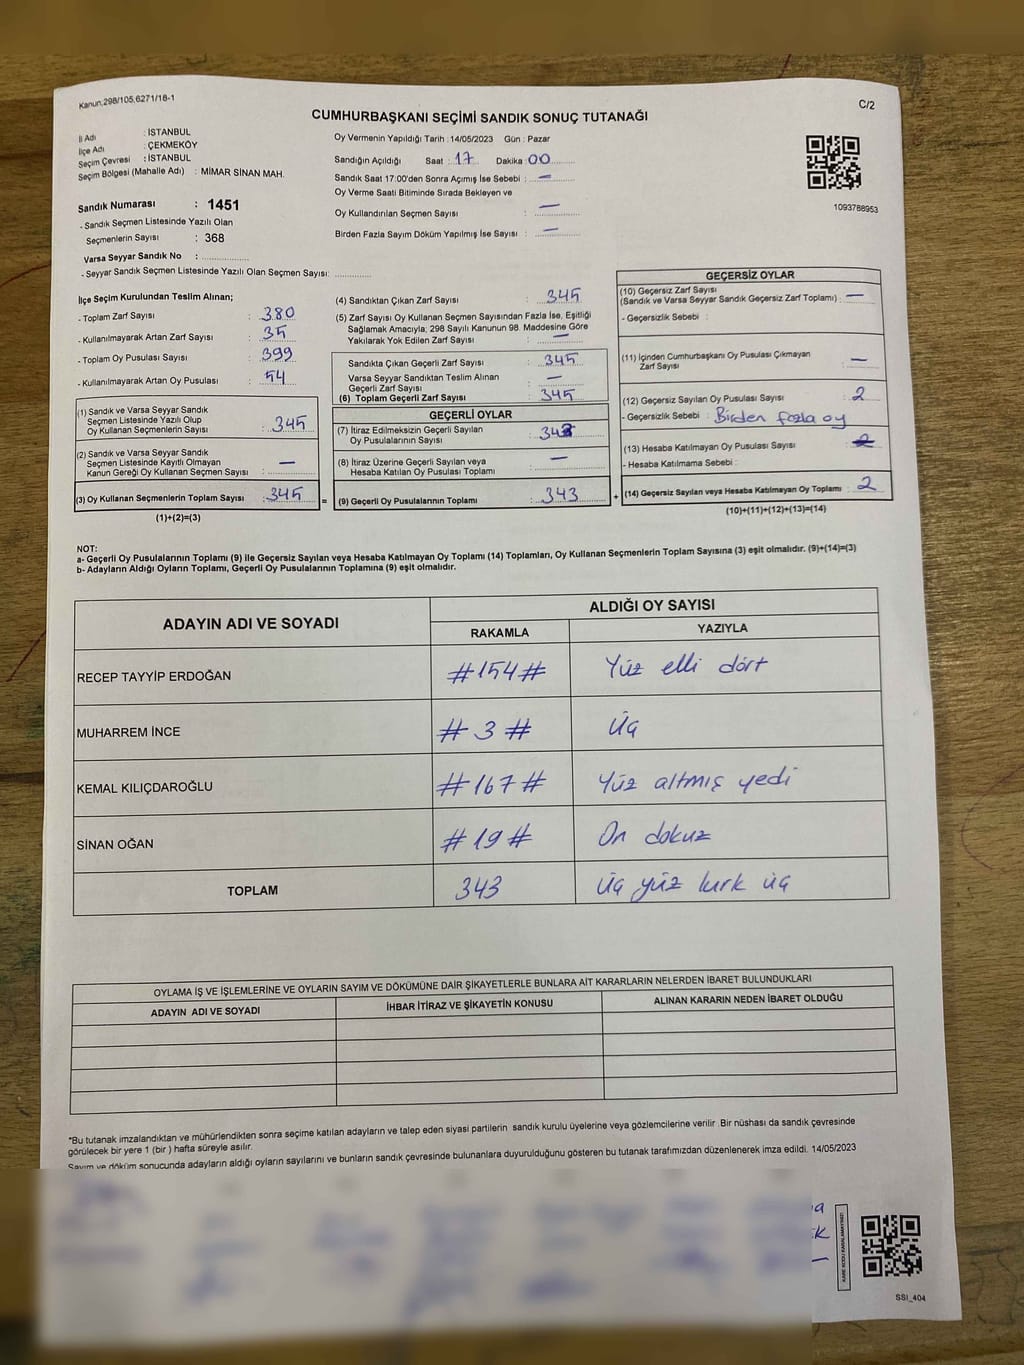 Kanun,298/105,6271/18-1
C/2
CUMHURBAŞKANI SEÇİMİ SANDIK SONUÇ TUTANAĞI
İl Adı : İSTANBUL
İlçe Adı : ÇEKMEKÖY
Seçim Çevresi : İSTANBUL
Seçim Bölgesi (Mahalle Adı) : MİMAR SİNAN MAH.
Sandık Numarası : 1451
- Sandık Seçmen Listesinde Yazılı Olan
Seçmenlerin Sayısı : 368
Varsa Seyyar Sandık No :
- Seyyar Sandık Seçmen Listesinde Yazılı Olan Seçmen Sayısı:
Oy Vermenin Yapıldığı Tarih : 14/05/2023 Gün : Pazar
Sandığın Açıldığı Saat : 17 Dakika 00
Sandık Saat 17:00'den Sonra Açımış İse Sebebi : —
Oy Verme Saati Bitiminde Sırada Bekleyen ve
Oy Kullandırılan Seçmen Sayısı : —
Birden Fazla Sayım Döküm Yapılmış İse Sayısı : —
1093788953
İlçe Seçim Kurulundan Teslim Alınan;
- Toplam Zarf Sayısı : 380
- Kullanılmayarak Artan Zarf Sayısı : 35
- Toplam Oy Pusulası Sayısı : 399
- Kullanılmayarak Artan Oy Pusulası : 54
(1) Sandık ve Varsa Seyyar Sandık
Seçmen Listesinde Yazılı Olup
Oy Kullanan Seçmenlerin Sayısı : 345
(2) Sandık ve Varsa Seyyar Sandık
Seçmen Listesinde Kayıtlı Olmayan
Kanun Gereği Oy Kullanan Seçmen Sayısı : —
(3) Oy Kullanan Seçmenlerin Toplam Sayısı : 345 =
(1)+(2)=(3)
(4) Sandıktan Çıkan Zarf Sayısı : 345
(5) Zarf Sayısı Oy Kullanan Seçmen Sayısından Fazla İse, Eşitliği
Sağlamak Amacıyla; 298 Sayılı Kanunun 98. Maddesine Göre
Yakılarak Yok Edilen Zarf Sayısı : —
Sandıkta Çıkan Geçerli Zarf Sayısı : 345
Varsa Seyyar Sandıktan Teslim Alınan
Geçerli Zarf Sayısı : —
(6) Toplam Geçerli Zarf Sayısı : 345
GEÇERLİ OYLAR
(7) İtiraz Edilmeksizin Geçerli Sayılan
Oy Pusulalarının Sayısı : 343
(8) İtiraz Üzerine Geçerli Sayılan veya
Hesaba Katılan Oy Pusulası Toplamı : —
(9) Geçerli Oy Pusulalarının Toplamı : 343 +
GEÇERSİZ OYLAR
(10) Geçersiz Zarf Sayısı
(Sandık ve Varsa Seyyar Sandık Geçersiz Zarf Toplamı) : —
- Geçersizlik Sebebi :
(11) İçinden Cumhurbaşkanı Oy Pusulası Çıkmayan
Zarf Sayısı : —
(12) Geçersiz Sayılan Oy Pusulası Sayısı : 2
- Geçersizlik Sebebi : Birden fazla oy
(13) Hesaba Katılmayan Oy Pusulası Sayısı : 2
- Hesaba Katılmama Sebebi :
(14) Geçersiz Sayılan veya Hesaba Katılmayan Oy Toplamı : 2
(10)+(11)+(12)+(13)=(14)
NOT:
a- Geçerli Oy Pusulalarının Toplamı (9) ile Geçersiz Sayılan veya Hesaba Katılmayan Oy Toplamı (14) Toplamları, Oy Kullanan Seçmenlerin Toplam Sayısına (3) eşit olmalıdır. (9)+(14)=(3)
b- Adayların Aldığı Oyların Toplamı, Geçerli Oy Pusulalarının Toplamına (9) eşit olmalıdır.
ADAYIN ADI VE SOYADI ALDIĞI OY SAYISI
RAKAMLA YAZIYLA
RECEP TAYYİP ERDOĞAN #154# Yüz elli dört
MUHARREM İNCE # 3 # Üç
KEMAL KILIÇDAROĞLU #167# Yüz altmış yedi
SİNAN OĞAN # 19 # On dokuz
TOPLAM 343 üç yüz kırk üç
OYLAMA İŞ VE İŞLEMLERİNE VE OYLARIN SAYIM VE DÖKÜMÜNE DAİR ŞİKAYETLERLE BUNLARA AİT KARARLARIN NELERDEN İBARET BULUNDUKLARI
ADAYIN ADI VE SOYADI İHBAR İTİRAZ VE ŞİKAYETİN KONUSU ALINAN KARARIN NEDEN İBARET OLDUĞU
*Bu tutanak imzalandıktan ve mühürlendikten sonra seçime katılan adayların ve talep eden siyasi partilerin sandık kurulu üyelerine veya gözlemcilerine verilir .Bir nüshası da sandık çevresinde
görülecek bir yere 1 (bir ) hafta süreyle asılır.
Sayım ve döküm sonucunda adayların aldığı oyların sayılarını ve bunların sandık çevresinde bulunanlara duyurulduğunu gösteren bu tutanak tarafımızdan düzenlenerek imza edildi. 14/05/2023
KARE KODU KARALAMAYINIZ!
SSI_404